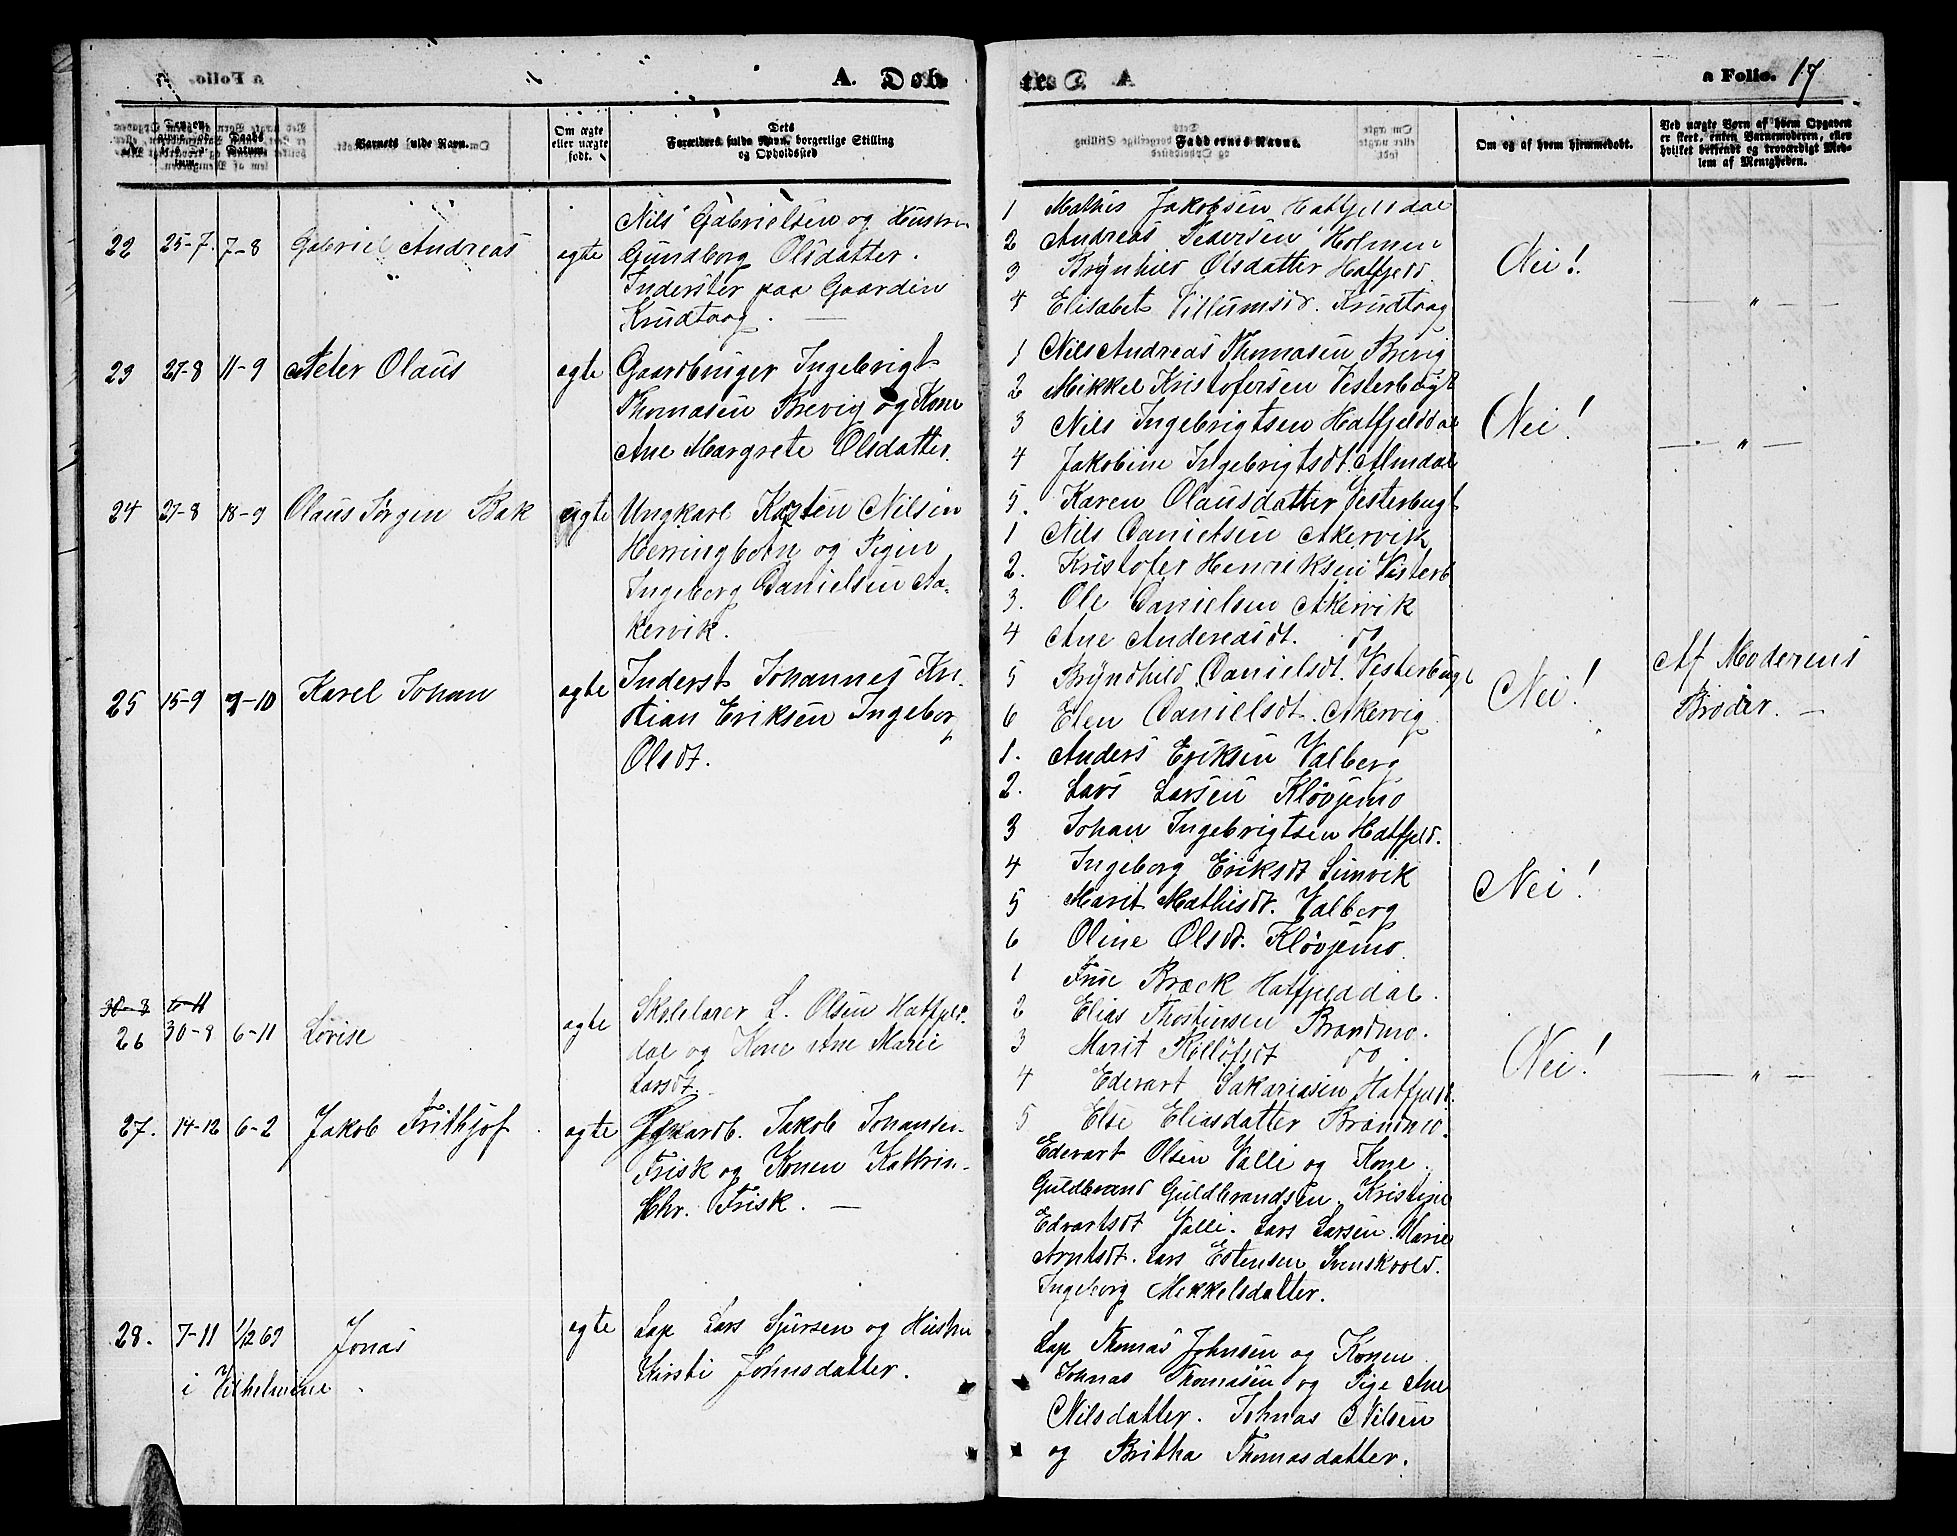 A. Døb
te. a Folio. 17
No. Daabs Datum. Barnets fulde Navn. Om ægte eller uægte født. Dets Forældres fulde Navn, borgerlige Stilling og Opholdssted
Faddernes Navne. Om og af hvem hjemmedøbt. Ved uægte Børn af hvem Opgaven er skeet, enten Barnemoderen, eller hvilket bekjendt og troværdigt Medlem af Menigheden.
22 25-7. 7-8 Gabriel Andreas ægte
Nils Gabrielsen og Hustru
Gundborg Olsdatter.
Inderster paa Gaarden
Krudtaag.
23 27-8 11-9 Peter Olaus ægte
Gaardbruger Ingebrigt
Thomasen Brevig og Kone
Ane Margrete Olsdatter.
24 27-8 18-9 Olaus Jørgen Bak uægte
Ungkarl Kasten Nilsen
Herringbotn og Pigen
Ingeborg Danielsen Aa-
kervik.
25 15-9 9-10 Karel Johan ægte
Inderst Johannes Kri-
stian Eriksen Ingeborg
Olsdt.
30-8 6-11
26 30-8 6-11 Lovise ægte
Skolelærer L. Olsen Hatfjeld-
dal og Kone Ane Marie
Larsdt.
27. 14-12 6-2 Jakob Frithjof ægte
Gaardb. Jakob Johansen
Frisk og Konen Kathrin-
Chr. Frisk.
28. 7-11 1/12 69 Jonas ægte
i Vilhelmine
Lap Lars Sjursen og Hustru
Kirsti Johnsdatter.
1 Mathis Jakobsen Hatfjelddal
2 Andreas Pedersen Holmen
3 Brynhild Olsdatter Hatfjeld
4 Elisabet Villumsd. Krudtaag
Nei!
"
1 Nils Andreas Thomasen Brevig
2 Mikkel Kristofersen Vesterbugt
3 Nils Ingebrigtsen Hatfjelddal
4 Jakobine Ingebrigtsdt. Almdal
5. Karen Olausdatter Vesterbugt
Nei!
"
1 Nils Danielsen Akervik
2. Kristofer Henriksen Vesterb
3. Ole Danielsen Akervik
4 Ane Andreasdt. do
5 Bryndhild Danielsdt. Vesterbugt
6 Elen Danielsdt. Akervig.
Nei!
Af Moderens
Broder.
1. Anders Eriksen Valberg
2. Lars Larsen Kløvjemo
3 Johan Ingebrigtsen Hatfjeld.
4 Ingeborg Eriksdt Sunvik
5 Marit Mathisdt. Valberg
6 Oline Olsdt. Kløvjemo.
Nei!
1 Frue Bræck Hatfjelddal.
2 Elias Thostensen Brandmo.
3 Marit Rolløfsdt do.
4 Edevart Sakariasen Hatfjeld.
5 Else Eliasdatter Brandmo.
Nei!
"
Edevart Olsen Valli og Kone.
Guldbrand Guldbrandsen. Kristine
Edvartsdt Valli. Lars Larsen. Marie
Arntsdt. Lars Estensen Svenskvold.
Ingeborg Mekkelsdatter.
Lap Thomas Johnsen og Konen.
Johnas Thomasen og Pige Ane
Nilsdatter. Johnas Nilsen
og Britha Thomasdatter.